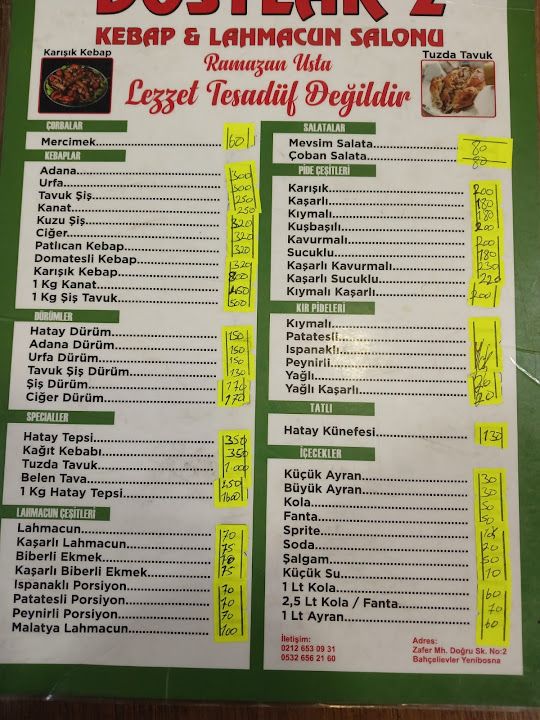 DOSTLAR 2
KEBAP & LAHMACUN SALONU
Karışık Kebap
Ramazan Usta
Tuzda Tavuk
Lezzet Tesadüf Değildir
ÇORBALAR
Mercimek 60
KEBAPLAR
Adana 300
Urfa 300
Tavuk Şiş 250
Kanat 250
Kuzu Şiş 320
Ciğer 320
Patlıcan Kebap 320
Domatesli Kebap 320
Karışık Kebap
1 Kg Kanat 450
1 Kg Şiş Tavuk 500
DÜRÜMLER
Hatay Dürüm 150
Adana Dürüm 150
Urfa Dürüm 150
Tavuk Şiş Dürüm 130
Şiş Dürüm 170
Ciğer Dürüm 170
SPECIALLER
Hatay Tepsi 350
Kağıt Kebabı 350
Tuzda Tavuk 1000
Belen Tava 350
1 Kg Hatay Tepsi 1600
LAHMACUN ÇEŞİTLERİ
Lahmacun 70
Kaşarlı Lahmacun 75
Biberli Ekmek 70
Kaşarlı Biberli Ekmek 75
Ispanaklı Porsiyon 70
Patatesli Porsiyon 70
Peynirli Porsiyon 70
Malatya Lahmacun 100
SALATALAR
Mevsim Salata 80
Çoban Salata 80
PİDE ÇEŞİTLERİ
Karışık 200
Kaşarlı 180
Kıymalı 180
Kuşbaşılı 200
Kavurmalı 200
Sucuklu 180
Kaşarlı Kavurmalı 230
Kaşarlı Sucuklu 220
Kıymalı Kaşarlı 200
KIR PİDELERİ
Kıymalı
Patatesli
Ispanaklı
Peynirli
Yağlı
Yağlı Kaşarlı
TATLI
Hatay Künefesi 130
İÇECEKLER
Küçük Ayran 30
Büyük Ayran 30
Kola 50
Fanta 50
Sprite
Soda 20
Şalgam 50
Küçük Su 10
1 Lt Kola 60
2,5 Lt Kola / Fanta 70
1 Lt Ayran 60
İletişim:
0212 653 09 31
0532 656 21 60
Adres:
Zafer Mh. Doğru Sk. No:2
Bahçelievler Yenibosna